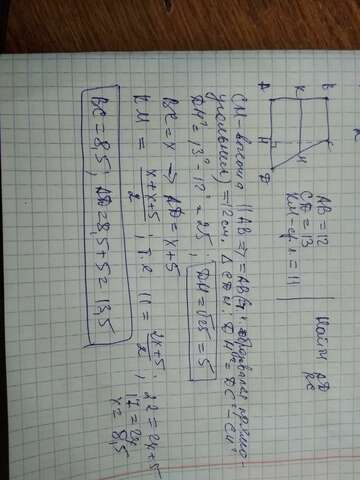 A K B
H M C
D
AB = 12
CD = 13
KM - ср. л = 11
Найти AD
BC
CH - высота || AB => = AB (т.к. образовался прямо-
угольник) = 12 см, Δ CDH: DH² = DC² - CH²
DH² = 13² - 12² = 25; DH = √25 = 5
BC = x → AD = x + 5
KM = x + x + 5 / 2 ; т.е 11 = 2x + 5 / 2 ; 22 = 2x + 5
17 = 2x
x = 8,5
BC = 8,5; AD = 8,5 + 5 = 13,5